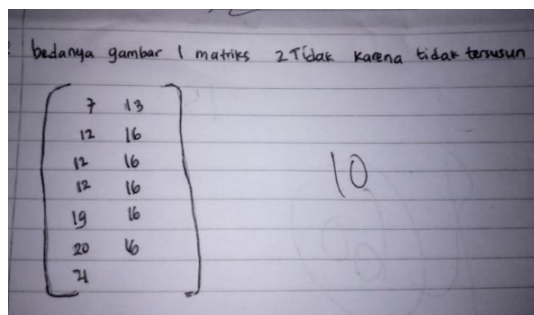 bedanya gambar 1 matriks 2 Tidak karena tidak tersusun
7 13
12 16
12 16
12 16
19 16
20 16
21
10